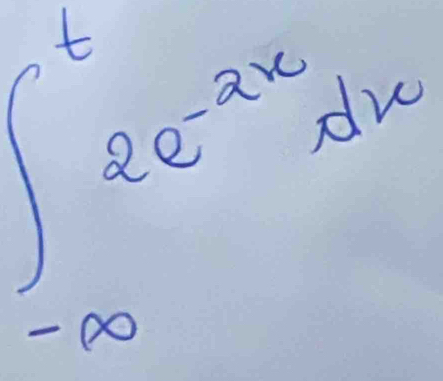 ∫_{-∞}^{t} 2e^{-2x} dx